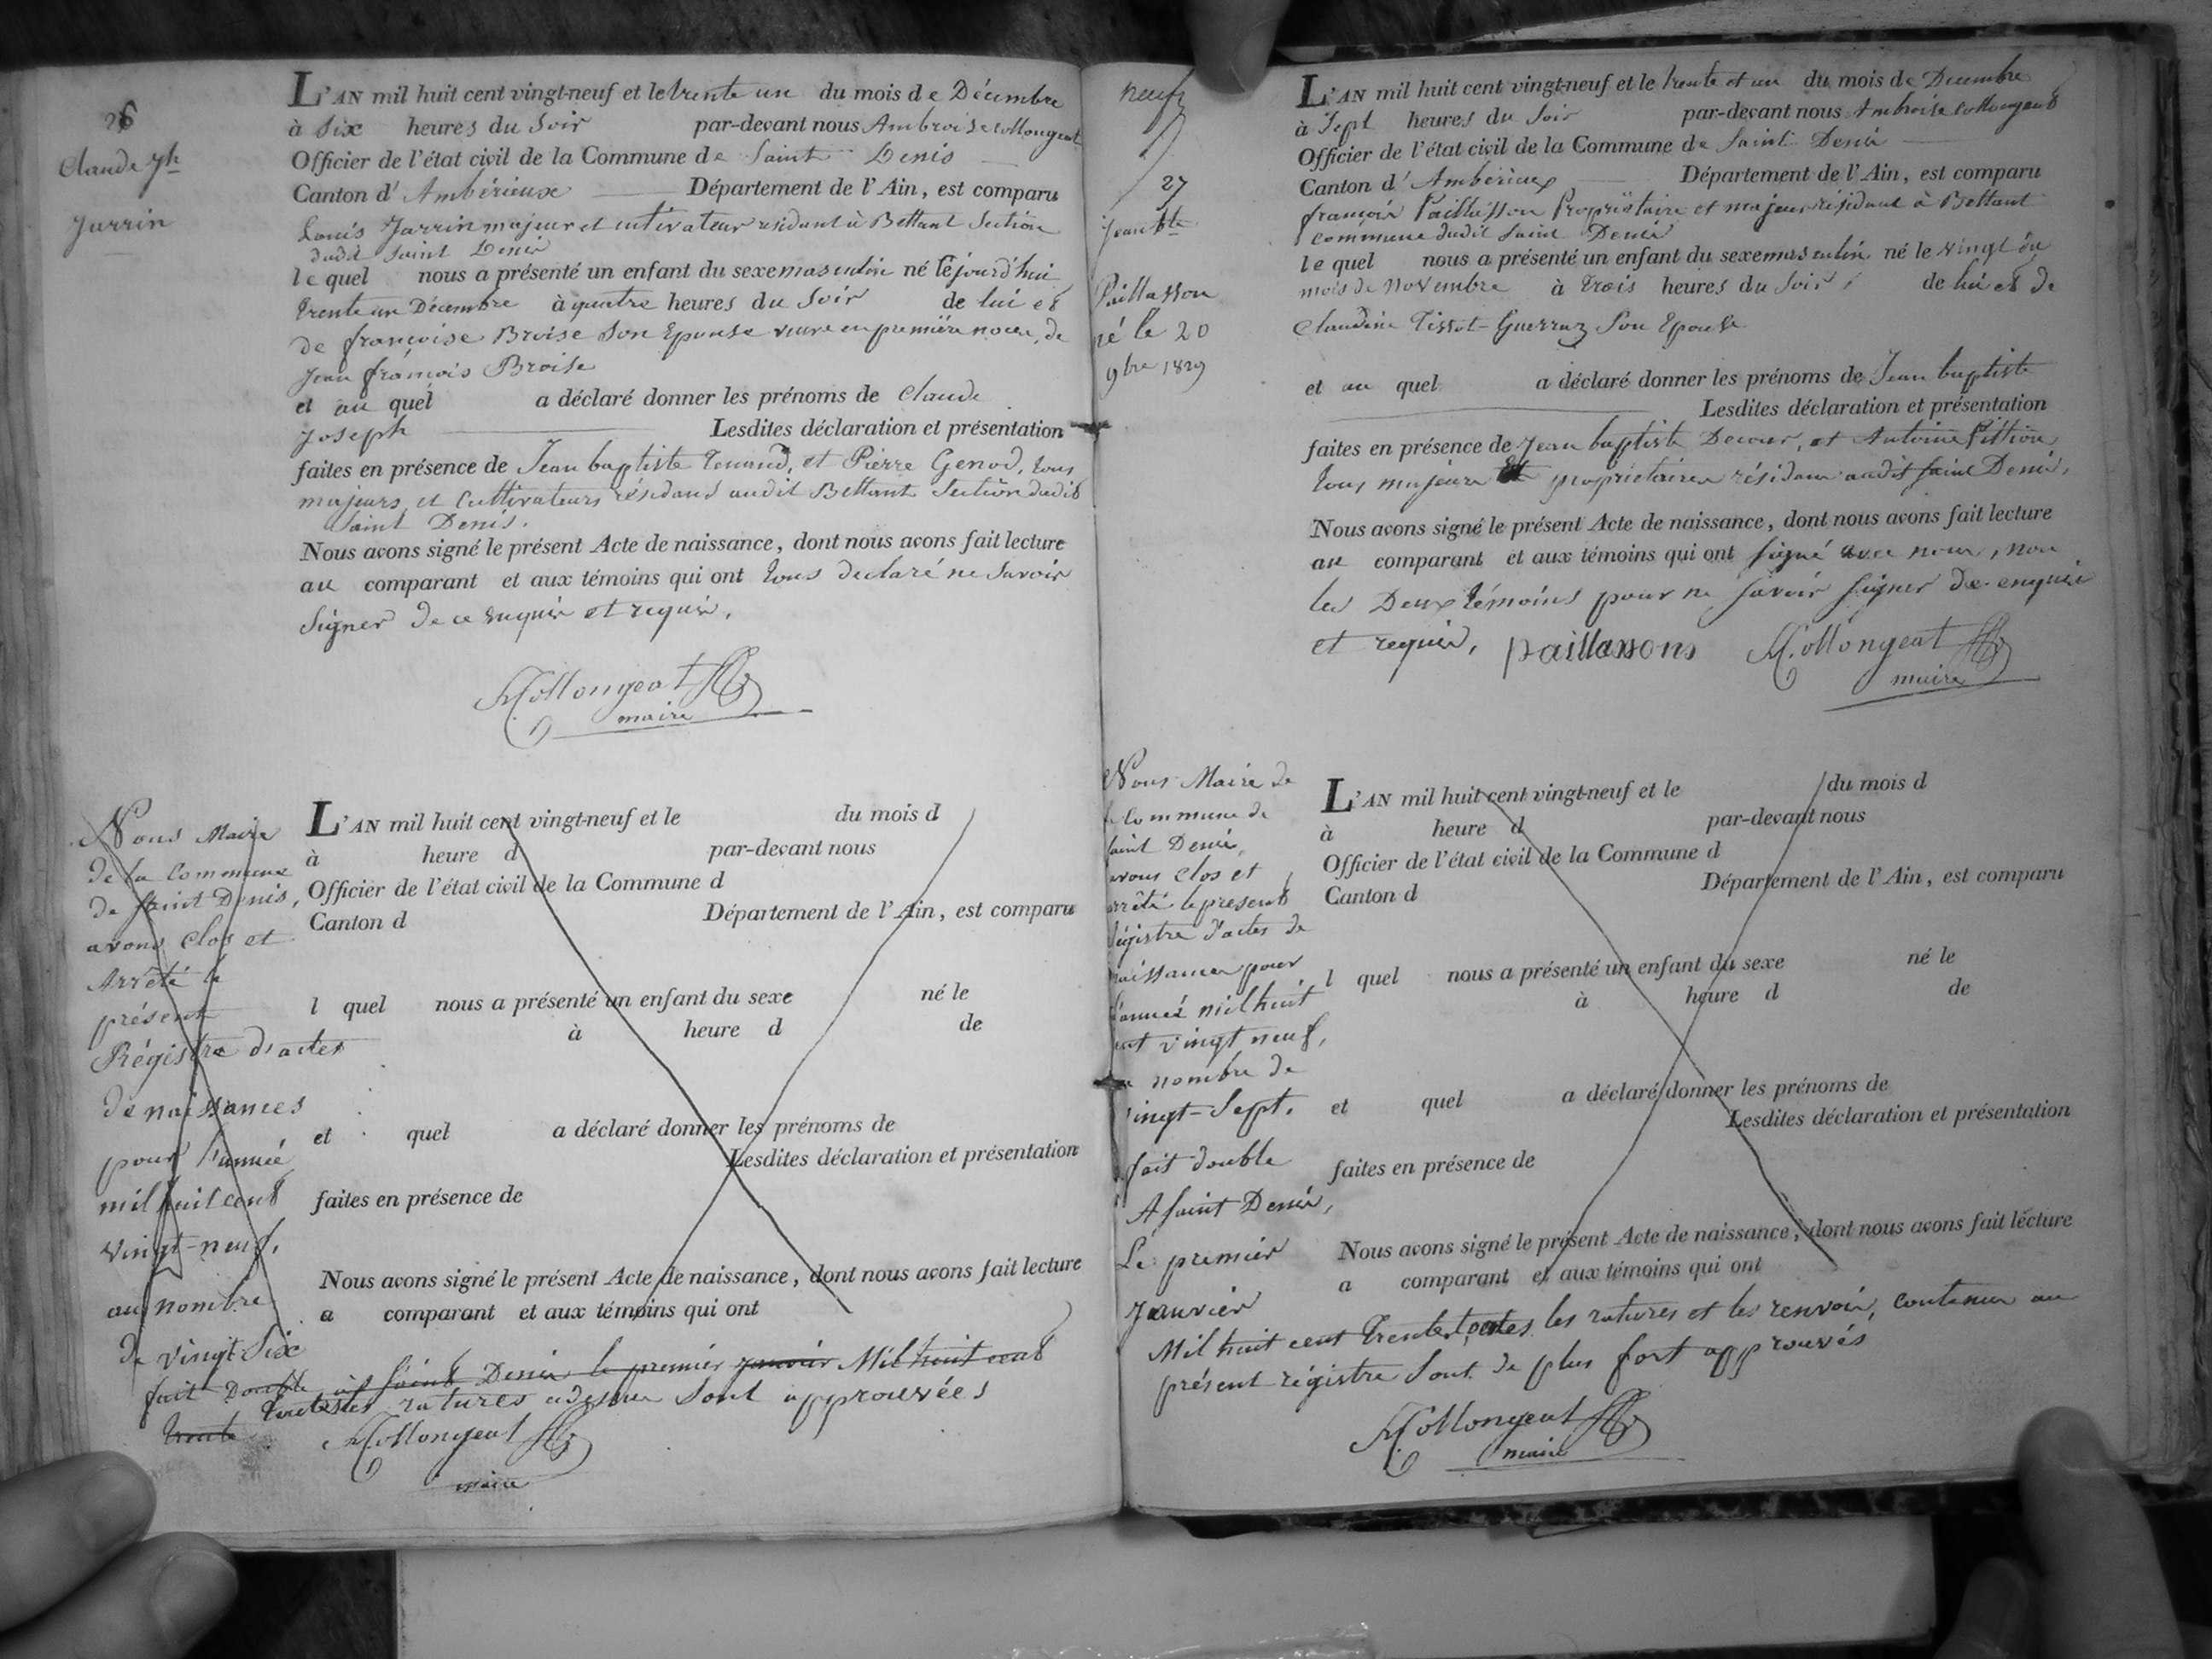 26
Claude Jh
Jarrin
L'AN mil huit cent vingt-neuf et le trente un du mois de Décembre
à Six heures du Soir par-devant nous Ambroise Collongeat
Officier de l'état civil de la Commune de Saint Denis
Canton d'Ambérieux Département de l'Ain, est comparu
Louis Jarrin majeur et cultivateur résidant à Bettant Section
dudit Saint Denis
lequel nous a présenté un enfant du sexe masculin né le jourd'hui
trente un Décembre à quatre heures du Soir de lui et
de françoise Broise Son Epouse veuve en première noces, de
Jean françois Broise
et au quel a déclaré donner les prénoms de Claude
Joseph Lesdites déclaration et présentation
faites en présence de Jean baptiste Tenand, et Pierre Genod, tous
majeurs et Cultivateurs résidans audit Bettant Section dudit
Saint Denis.
Nous avons signé le présent Acte de naissance, dont nous avons fait lecture
au comparant et aux témoins qui ont tous declaré ne Savoir
Signer de ce enquis et requis.
Collongeat
maire
Nous Maire
de la Commune
de Saint Denis,
avons Clos et
Arrêté le
présent
Régistre d'actes
de naissances
pour l'année
mil huit cent
vingt-neuf,
au nombre
de vingt Six
fait Double à Saint Denis le premier janvier Mil huit cent
trente
L'AN mil huit cent vingt-neuf et le du mois d
à heure d par-devant nous
Officier de l'état civil de la Commune d
Canton d Département de l'Ain, est comparu
l quel nous a présenté un enfant du sexe né le
à heure d de
et quel a déclaré donner les prénoms de
Lesdites déclaration et présentation
faites en présence de
Nous avons signé le présent Acte de naissance, dont nous avons fait lecture
a comparant et aux témoins qui ont
toutes les ratures cidessus Sont approuvées
Collongeat
maire
neuf
27
Jean bte
Paillasson
né le 20
9bre 1829
L'AN mil huit cent vingt-neuf et le trente et un du mois de Décembre
à Sept heures du Soir par-devant nous Ambroise Collongeat
Officier de l'état civil de la Commune de Saint Denis
Canton d'Ambérieux Département de l'Ain, est comparu
françois Paillasson Propriétaire et majeur résidant à Bettant
commune dudit Saint Denis
lequel nous a présenté un enfant du sexe masculin né le vingt du
mois de Novembre à trois heures du Soir, de lui et de
Claudine Tissot-Guerraz Son Epouse
et au quel a déclaré donner les prénoms de Jean baptiste
Lesdites déclaration et présentation
faites en présence de Jean baptiste Decour, et Antoine Pittion
tous majeurs et propriétaires résidans audit Saint Denis,
Nous avons signé le présent Acte de naissance, dont nous avons fait lecture
au comparant et aux témoins qui ont signé avec nous, non
les Deux témoins pour ne Savoir Signer de enquis
et requis. paillassons Collongeat
maire
Nous Maire de
Commune de
Saint Denis,
avons Clos et
arrêté le présent
Régistre d'actes de
naissances pour
l'année mil huit
cent vingt neuf,
nombre de
vingt-Sept.
fait double
A Saint Denis,
Le premier
Janvier
Mil huit cent trente toutes les ratures et les renvois, contenus au
présent régistre Sont de plus fort approuvés
L'AN mil huit cent vingt-neuf et le du mois d
à heure d par-devant nous
Officier de l'état civil de la Commune d
Canton d Département de l'Ain, est comparu
l quel nous a présenté un enfant du sexe né le
à heure d de
et quel a déclaré donner les prénoms de
Lesdites déclaration et présentation
faites en présence de
Nous avons signé le présent Acte de naissance, dont nous avons fait lecture
a comparant et aux témoins qui ont
Collongeat
maire